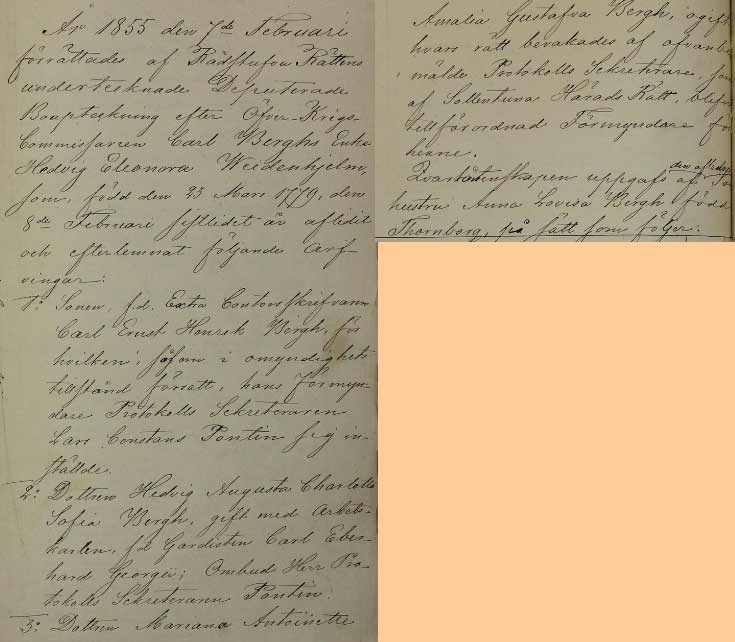 År 1855 den 7de Februari
förrättades af Rådstufvu Rättens
undertecknade Deputerade
Bouptekning efter Öfver-Krigs-
Commissarien Carl Berghs Enka
Hedvig Eleonora Weidenhjelm,
som, född den 23 Mars 1779, den
8de Februari sistledit år aflidit
och efterlemnat följande arf
vingar:
1: Sonen, f.d. Extra Contorsskrifvaren
Carl Ernst Henrik Bergh, för
hvilken, såsom i omyndighets
tillstånd försatt, hans Förmyn-
dare Protokolls Sekreteraren
Lars Constans Pontin sig in-
ställde.
2: Dottren Hedvig Augusta Charlotta
Sofia Bergh, gift med Arbets-
karlen, f.d. Gardisten Carl Eber-
hard Georgii; Ombud Herr Pro-
tokolls Sekreteraren Pontin.
3: Dottren Mariana Antoinette
Amalia Gustafva Bergh, ogift
hvars rätt bevakades af ofvanbe
mälde Protokolls Sekreterare, som
af Sollentuna Härads Rätt, blifvit
tillförordnad Förmyndare för
henne.
Qvarlåtenskapen uppgafs af den aflednas
hustru Anna Lovisa Bergh född
Thornberg, på sätt som följer: